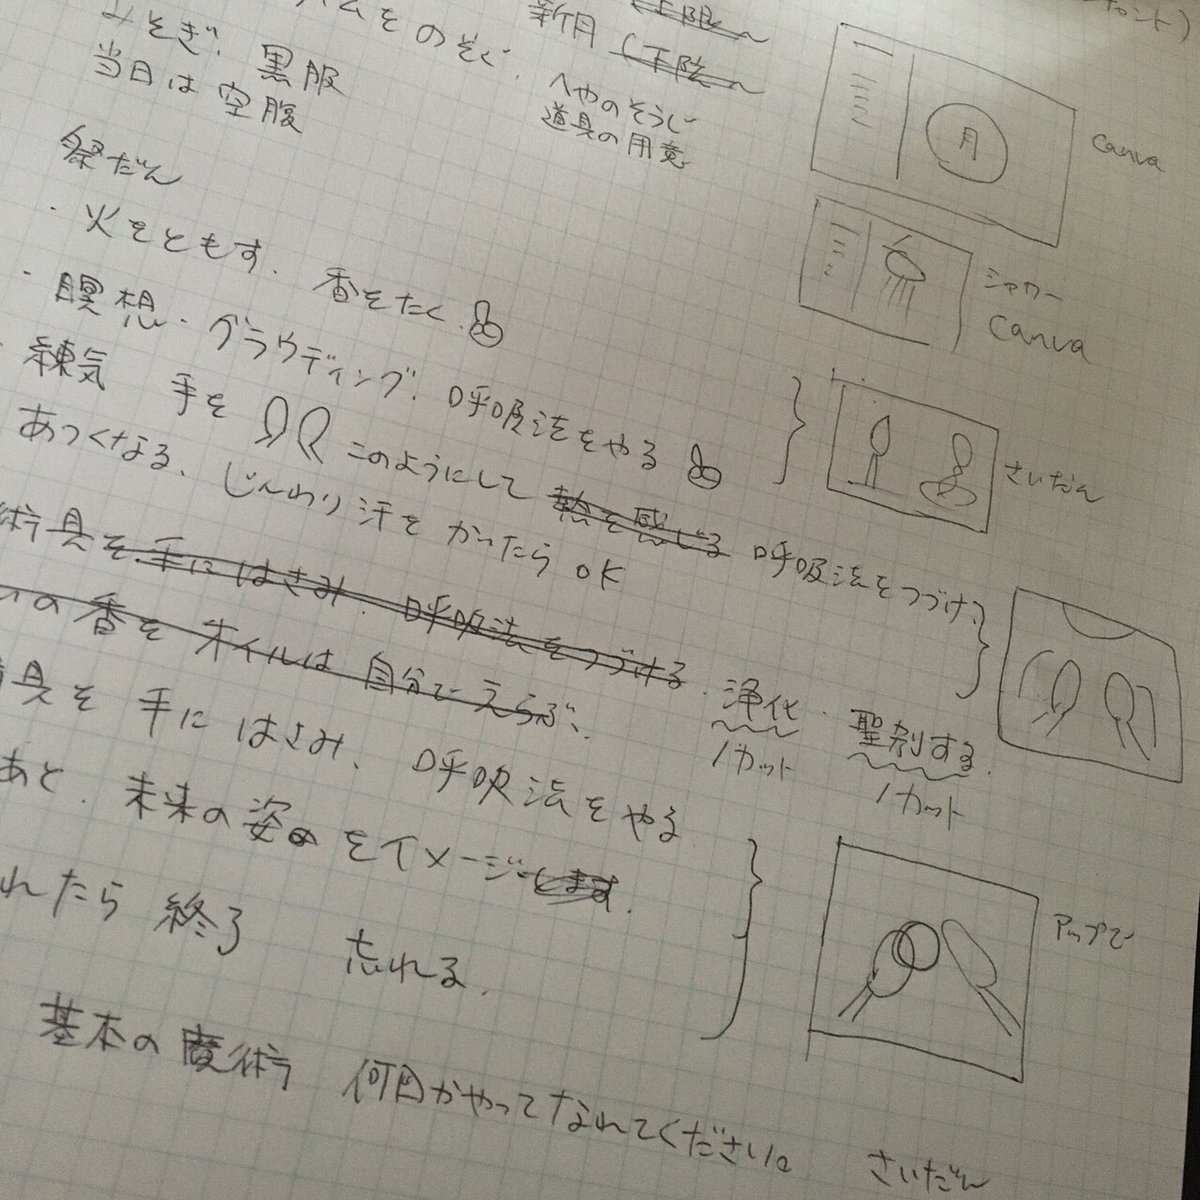 をのぞく. 新月 (上限〜
みそぎ. 黒服 (下限〜
当日は 空腹 へやのそうじ
道具の用意
月
Canva
祭だん
・火をともす. 香をたく.
シャワー
Canva
・瞑想・グラウディング. 呼吸法をやる
さいだん
・練気 手を このようにして 熱を感じる 呼吸法をつづけ.
あつくなる. じんわり汗を かいたら OK
術具を 手にはさみ. 呼吸法をつづける. 浄化・聖別する.
1カット 1カット
の香を オイルは 自分でえらぶ.
具を 手に はさみ. 呼吸法をやる
あと. 未来の姿 をイメージします.
れたら 終了 忘れる.
アップで
基本の魔術 何回かやってなれてください。 さいだん